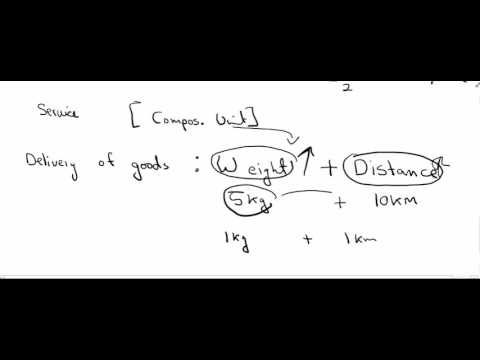 2
Service [ Compos. Unit]
Delivery of goods : Weight + Distance
5kg + 10km
1kg + 1km